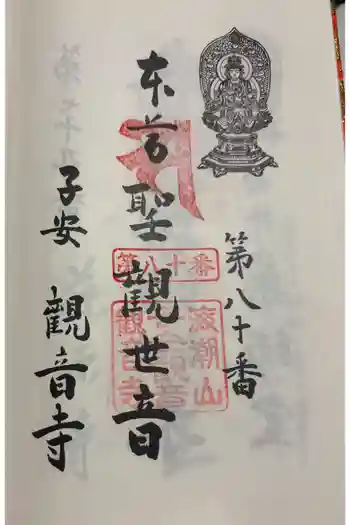 第八十番
本尊聖観世音
子安 観音寺
第八十番
波潮山
観音寺